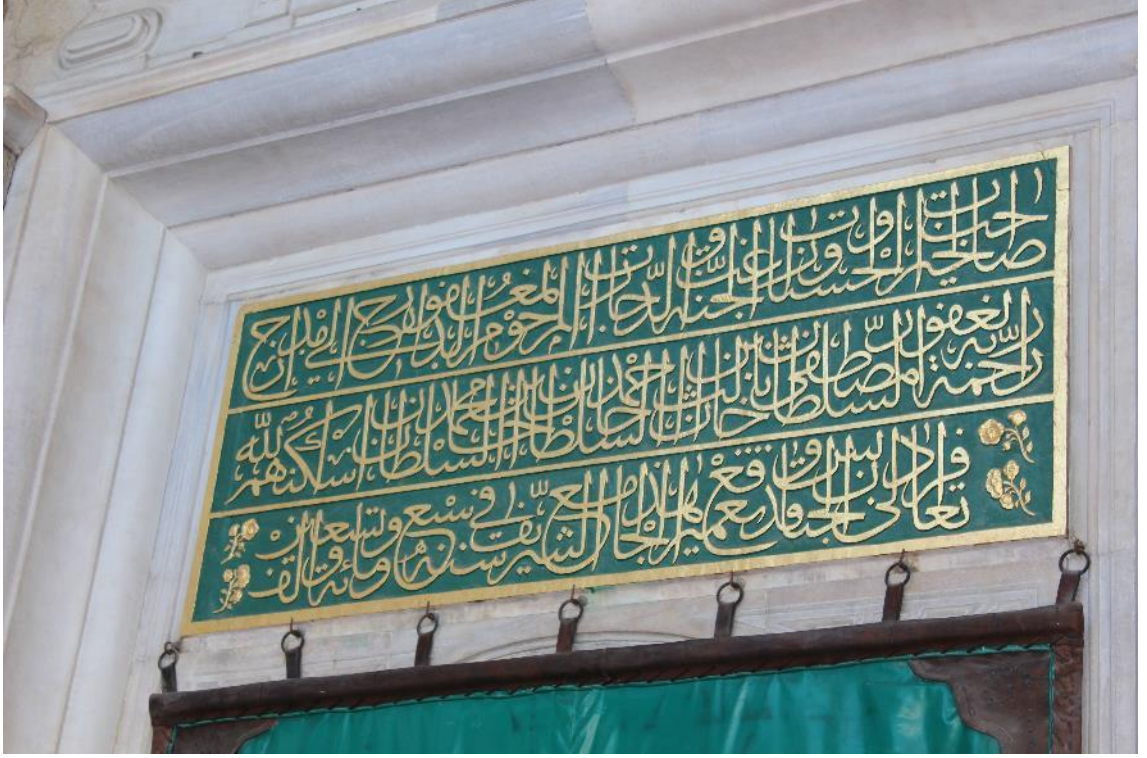 صاحب الخيرات والحسنات وراغب الجنة والدرجات المرحوم المغفور الى
رحمة ربه الغفور السلطان مصطفى خان الثالث ابن السلطان احمد خان ابن السلطان محمد خان اسكنهم الله
تعالى فراديس الجنان وقد وقع تعمير هذا الجامع الشريف في سنة سبع وتسعين ومائة والف